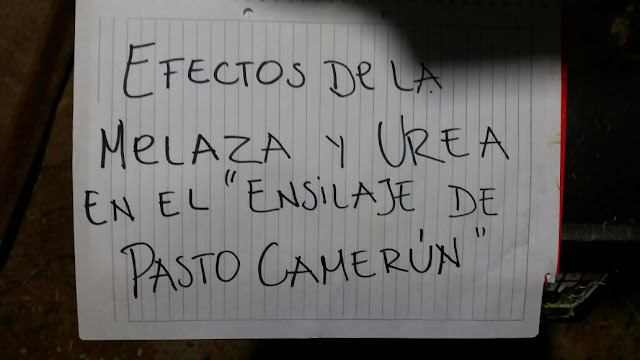 EFECTOS De LA
MeLAZA Y UREA
EN EL "ENSILAJE DE
PASTO CAMERÚN"